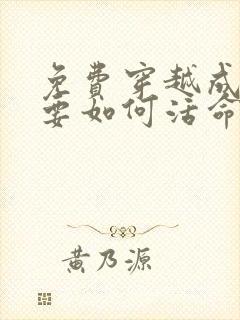 免費穿越成
要如何活命
黃乃源